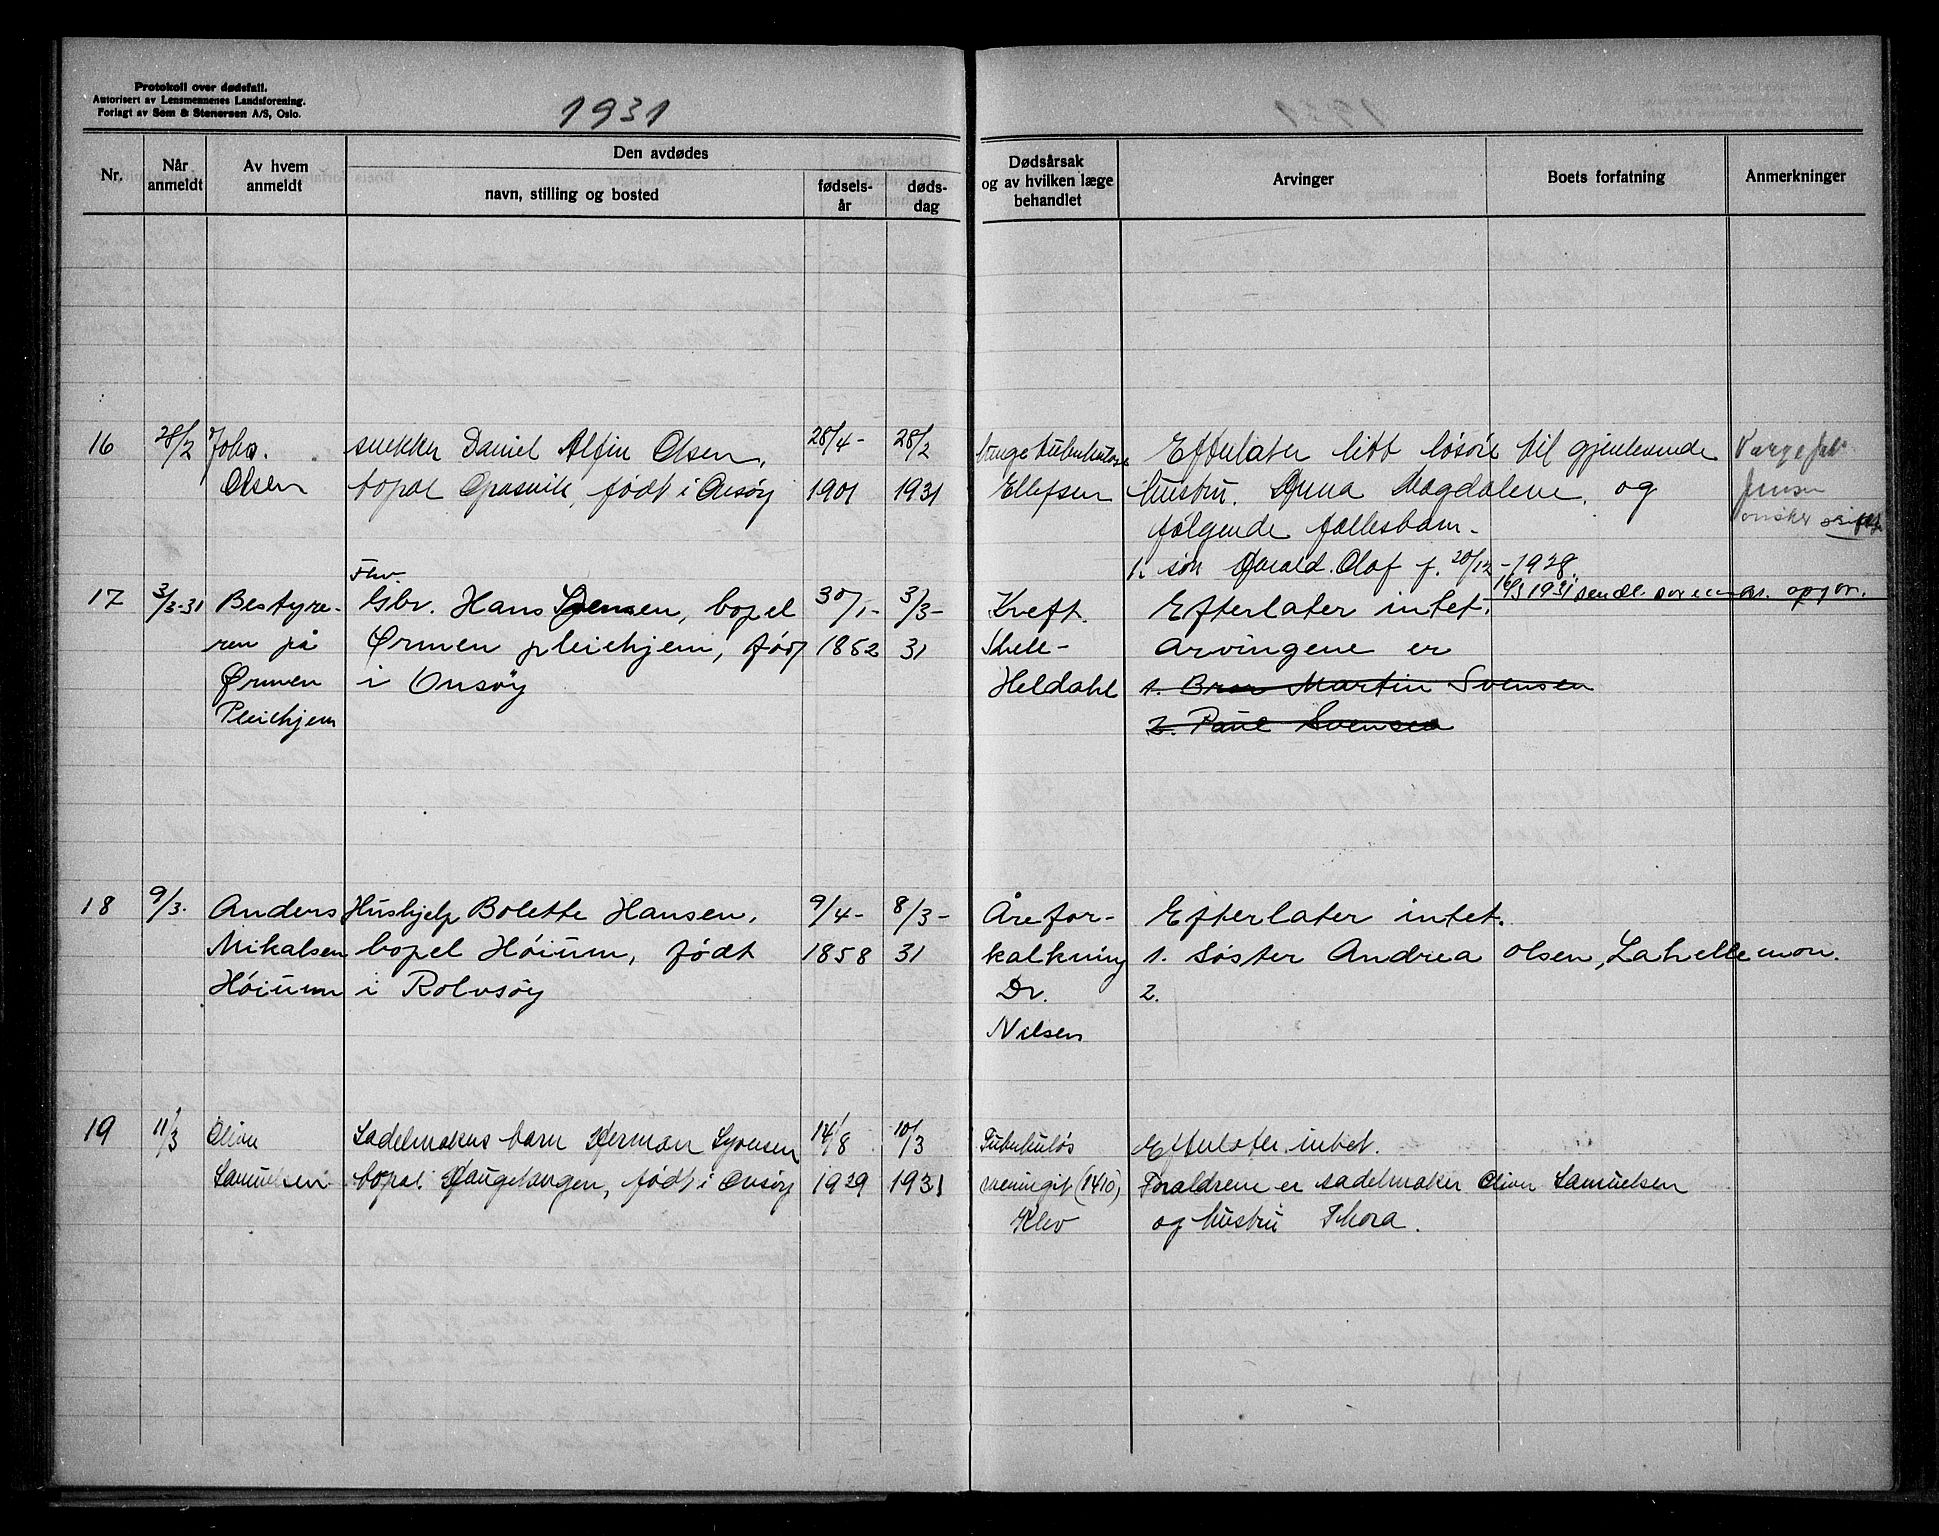 Protokoll over dødsfall.
Autorisert av Lensmennenes Landsforening.
Forlagt av Sem & Stenersen A/S, Oslo.
1931
Nr.
Når anmeldt
Av hvem anmeldt
Den avdødes
navn, stilling og bosted
fødselsår
dødsdag
Dødsårsak og av hvilken læge behandlet
Arvinger
Boets forfatning
Anmerkninger
16 28/2 Johs. snekker Daniel Alfin Olsen, 28/4- 28/2 Efterlater litt løsøre til gjenlevende
Olsen bopæl født i Onsøy 1901 1931 Ellefsen hustru. Anna Magdalene og Jensen
følgende fællesbarn. ønsker skifte
1. søn Harald Olaf f. 20/12-1928.
Fhv. 16/3 1931 sendt sorenskr. opgjør.
17 3/3-31 Bestyre- Gbr. Hans Svensen, bopel 30/1- 3/3- Kreft. Efterlater intet.
ren på Ørmen pleiehjem, født 1852 31 Arvingene er
Ørmen i Onsøy Heldahl 1. Bror Martin Svensen
Pleiehjem 2. Paul Svensen
18 9/3. Anders Hushjelp Bolette Hansen, 9/4- 8/3- Årefor- Efterlater intet.
Mikalsen bopel Høium, født 1858 31 kalkning 1. Søster Andrea Olsen, Lahellemon.
Høium i Rolvsøy Dr. 2.
Nilsen
19 11/3 Oliver Sadelmakers barn Herman Syversen 14/8 10/3 Tuberkuløs Efterlater intet.
Samuelsen bopæl Haugetangen, født i Onsøy 1929 1931 meningit (1410) Foreldrene er sadelmaker Oliver Samuelsen
Klev og hustru Thora.